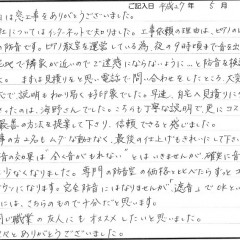 ご記入日 平成27年 6月
は窓工事をありがとうございました。
についてはインターネットで知りました。工事依頼の理由は、ピアノの
防音です。ピアノ教室を運営している為、夜の9時頃まで音を出
地で隣家が近いのでご迷惑にならないように…と防音を検
まずは見積りをと思い電話で問い合わせをしたところ、大変
で説明もわかり易く好印象でした。早速、自宅へ見積りに
たのは、海野さんでした。こちらも丁寧な説明で、更にコス
最善の方法を提案して下さり、信頼できると感じました。
事の方々もムダな動きなく、最後の仕上げもきれいにして下さ
音の効果は"全く音がもれない"とはいきませんが、確実に音
少なくなりました。専門の防音室の価格と比べたらずっと
になります。完全防音にはなりませんが"遮音"でOKとい
には、こちらのもので十分だと思います。
同じ職業の友人にもオススメしたいと思いました。
ありがとうございました。